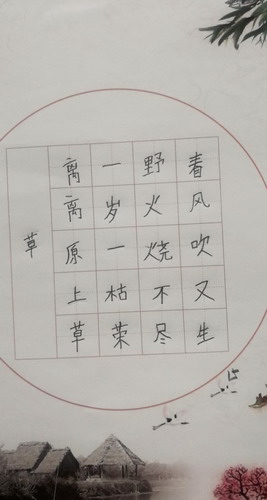 草
离离原上草
一岁一枯荣
野火烧不尽
春风吹又生